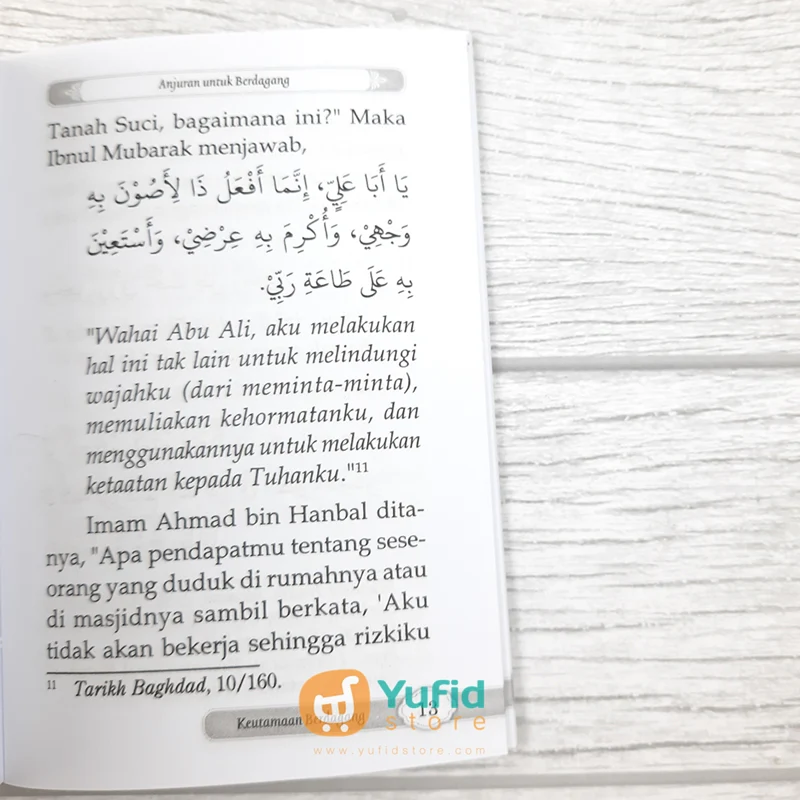 Anjuran untuk Berdagang
Tanah Suci, bagaimana ini?" Maka
Ibnul Mubarak menjawab,
يَا أَبَا عَلِيٍّ، إِنَّمَا أَفْعَلُ ذَا لِأَصُوْنَ بِهِ
وَجْهِيْ، وَأُكْرِمَ بِهِ عِرْضِيْ، وَأَسْتَعِيْنَ
بِهِ عَلَى طَاعَةِ رَبِّيْ.
"Wahai Abu Ali, aku melakukan
hal ini tak lain untuk melindungi
wajahku (dari meminta-minta),
memuliakan kehormatanku, dan
menggunakannya untuk melakukan
ketaatan kepada Tuhanku."¹¹
Imam Ahmad bin Hanbal dita-
nya, "Apa pendapatmu tentang sese-
orang yang duduk di rumahnya atau
di masjidnya sambil berkata, 'Aku
tidak akan bekerja sehingga rizkiku
¹¹ Tarikh Baghdad, 10/160.
Keutamaan Berdagang 13
Yufid
store
www.yufidstore.com